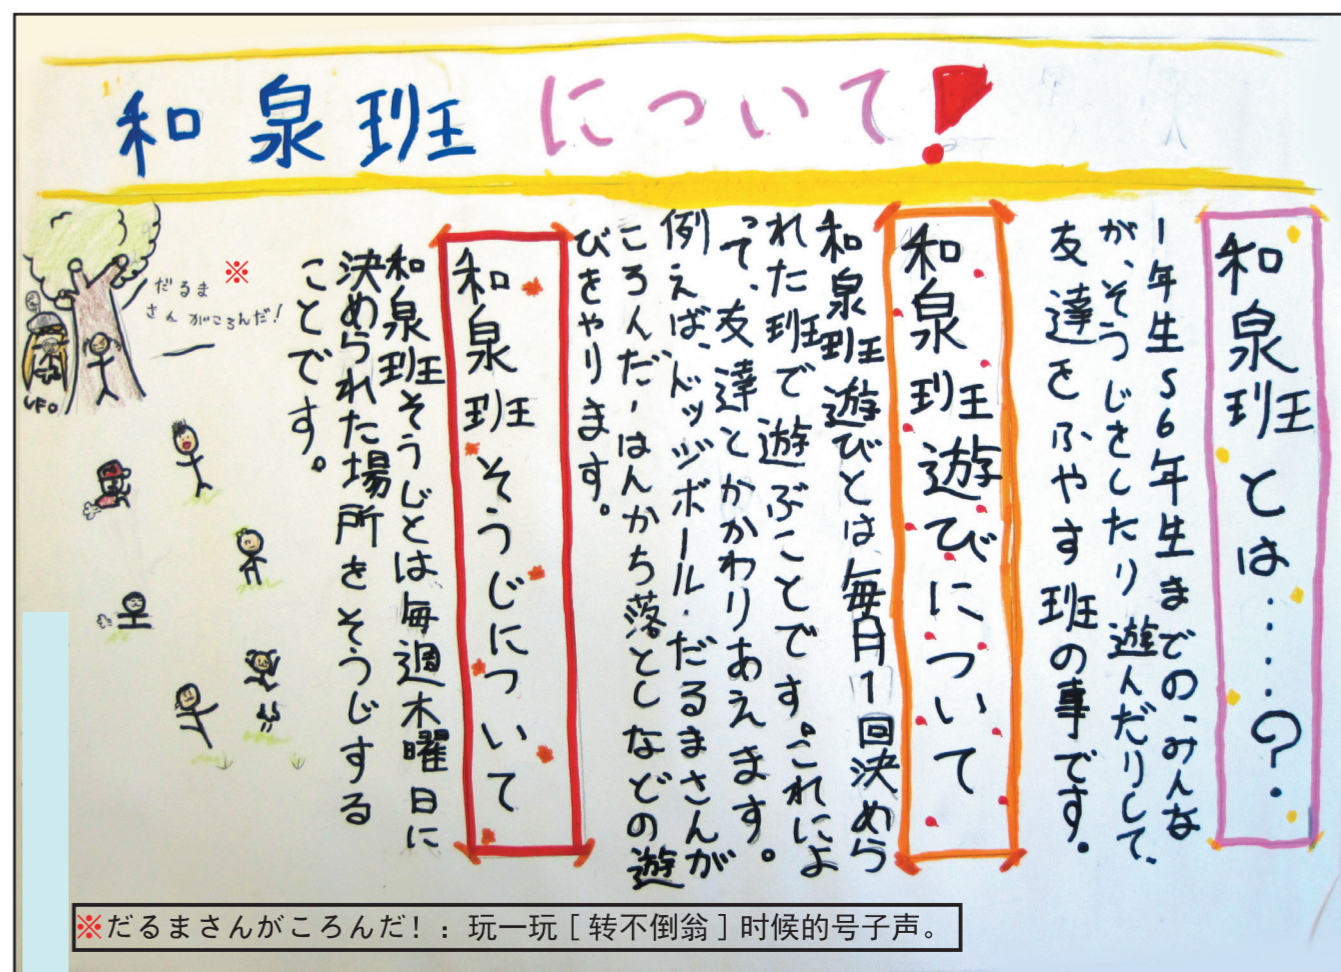 和泉班について!
和泉班とは・・・・?
1年生〜6年生までの、みんな
が、そうじをしたり遊んだりして、
友達をふやす班の事です。
和泉班遊びについて
和泉班遊びとは毎月1回決めら
れた班で遊ぶことです。これによ
って、友達とかかわりあえます。
例えば、ドッジボール・だるまさんが
ころんだ・はんかち落としなどの遊
びをやります。
和泉班そうじについて
和泉班そうじとは毎週木曜日に
決められた場所をそうじする
ことです。
※
だるま
さんがころんだ!
UFO
※だるまさんがころんだ!:玩一玩[转不倒翁]时候的号子声。